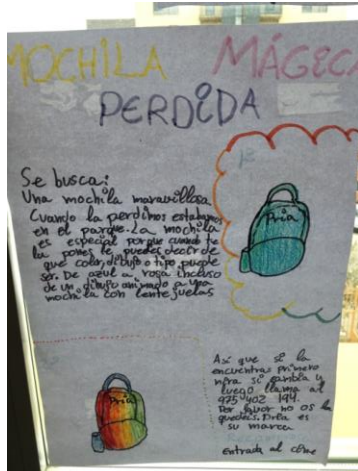 MOCHILA MÁGICA
PERDIDA
Se busca:
Una mochila maravillosa
Cuando la perdimos estabamos
en el parque. La mochila
es especial porque cuando te
la pones te puedes decir de
que color, dibujo o tipo puede
ser. De azul a rosa incluso
de un dibujo animado a una
mochila con lentejuelas
Pria
Pria
Así que si la
encuentras primero
mira si cambia y
luego llama al
975 402 194.
Por favor no os la
quedeis. Pria es
su marca
entrada al cine